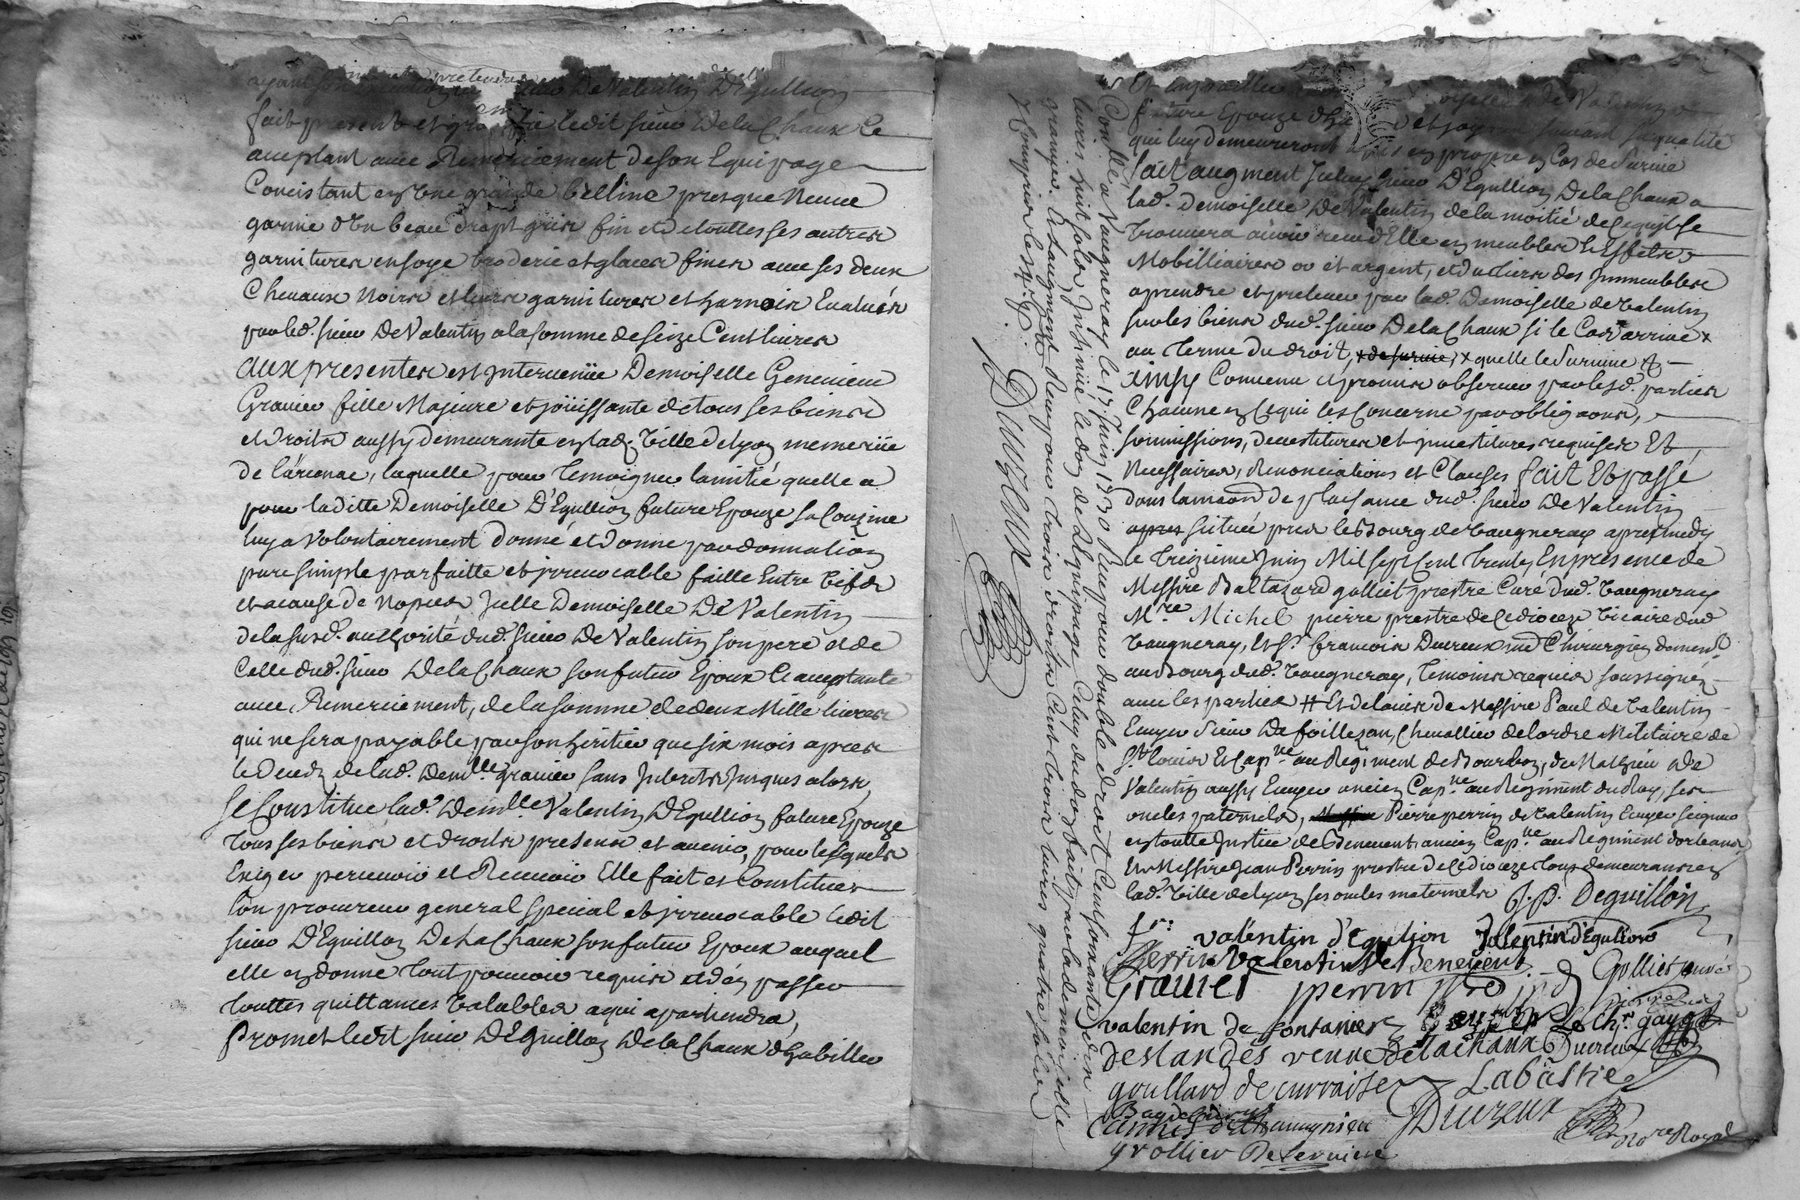 sieur De Valentin D'Egullion
fait present et ledit sieur De la Chaux le
acceptant avec Remerciement de son Equipage
Concistant en une grande belline presque Neuve
garnie d'un beau drapt gris fin et de touttes ses autres
garnitures en soye broderie et glaces fines avec ses deux
Chevaux Noirs et leurs garnitures et harnois Evalués
par led. sieur De Valentin a la somme de seize Cent livres
Aux presentes est Intervenüe Demoiselle Genevieve
Gravier fille Majeure et joüissante de tous ses biens
et droits aussy demeurante en lad. Ville de Lyon meme rüe
de l'arcenac, laquelle pour temoigner l'amitié quelle a
pour la ditte Demoiselle D'Egullion future Epouze sa Couzine
luy a Volontairement donné et donne par donnation
pure simple parfaitte et irrevocable faitte Entre Vifs
et a cause de Nopces Icelle Demoiselle De Valentin
de la susd. authorité dud. sieur De Valentin son pere et de
Celle dud. sieur De la Chaux son futur Epoux Acceptante
avec Remerciement, de la somme de deux Mille livres
qui ne sera payable par son heritier que six mois apres
le Deceds de lad. Demlle gravier sans Interets Jusques alors,
Se Constitue lad. Demlle Valentin D'Egullion future Epouze
tous ses biens et droits presens et avenir, pour lesquels
Exiger percevoir et Recevoir Elle fait et Constitue
son procureur general special et irrevocable ledit
sieur D'Eguillon De La Chaux son futur Epoux auquel
elle en donne tout pouvoir requis et d'en passer
touttes quittances Valables a qui apartiendra,
Promet ledit sieur D'Eguillon De la Chaux d'habiller
Et
future Epouze
qui luy demeureront en propre en Cas de Survie
fait augment Iceluy sieur D'Egullion De la Chaux a
lad. Demoiselle De Valentin de la moitié de ce qu'il se
trouvera avoir receu d'Elle en meubles Et Effets
Mobilliaires or et argent, et du tiers des Immeubles
a prendre et prelever par lad. Demoiselle de Valentin
sur les biens dud. sieur De la Chaux si le Cas arrive x
au terme du droit, x de survie, x quelle le survive
Ainsy Convenu et promis observer par lesd. parties
Chacune en ce qui les Concerne par obligaons,
soumissions, devestitures et investitures requises Et
Necessaires, Renonciations et Clauses fait Et passé
dans la maison de plaisance dud. sieur De Valentin
située pres le Bourg de Vaugneray apres midy
le treizieme Juin Mil sept Cent trente En presence de
Messire Baltazard golliet prestre Curé dud. Vaugneray
Mre. Michel pierre prestre de ce dioceze Vicaire dud.
Vaugneray, Et Sr. francois Ducreux md Chirurgien demt.
au Bourg dud. Vaugneray, temoins requis soussignés
avec les parties # Et de
Messire Paul de Valentin
Ecuyer sieur De foillezan, Chevallier de l'ordre Militaire de
St. louis Et Cape. au Regiment de Bourbon, de Mathieu De
Valentin aussy Ecuyer ancien Cape. au Regiment du Roy, ses
oncles paternels, Pierre perrin de Valentin Ecuyer seigneur
en toutte Justice de Benevent ancien Cape. au Regiment d'orleans,
Et Messire Jean Perrin prestre de ce dioceze tous demeurans en
lad. Ville de Lyon ses oncles maternels J. P. Deguillon
valentin d'Egulion Valentin d'Egullion
Perrin Valentin De Benevent
Gravier J perrin Golliet curé
valentin de fontaniere Le Chr. gayot
deslandes veuve de lachaux Ducreux
goullard de curraize Labastie
Duvreux
grollier De Serviere
Nore. Royal
Conllé a Vaugneray le 17 Juin 1730 Receu pour double droit Cent soixante dix
livres huit sols, Insinué le don de l'Equipage, Celuy du don fait par la demoiselle
gravier, Et l'augment Receu pour trois droits Cent trois livres quatre sols
y Compris les 4 s. p. l.
Duvreux